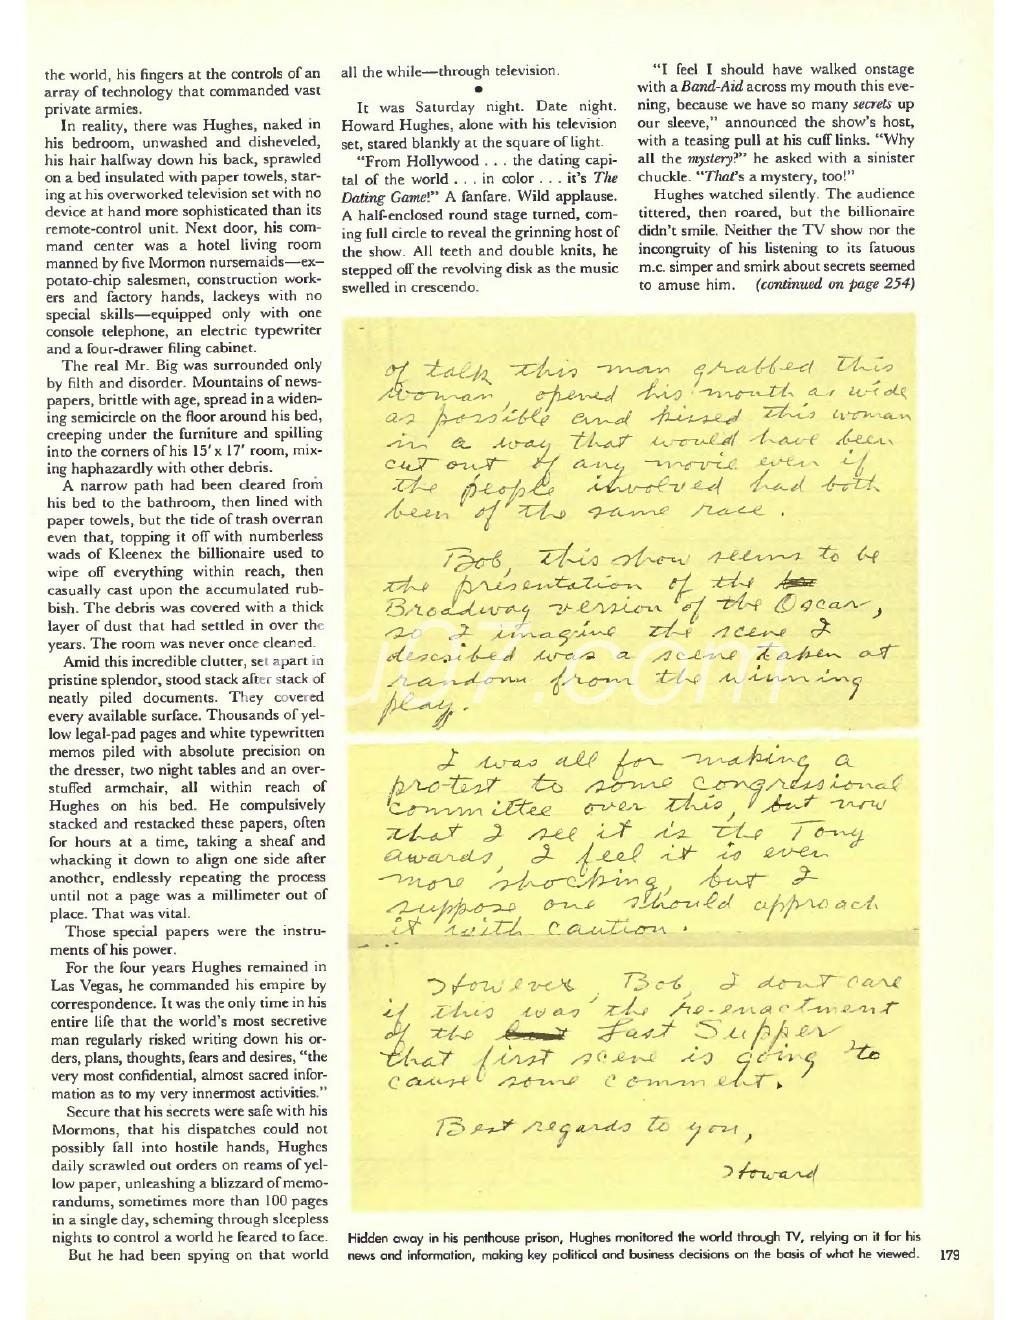 the world, his fingers at the controls of an
array of technology that commanded vast
private armies.
In reality, there was Hughes, naked in
his bedroom, unwashed and disheveled,
his hair halfway down his back, sprawled
on a bed insulated with paper towels, star-
ing at his overworked television set with no
device at hand more sophisticated than its
remote-control unit. Next door, his com-
mand center was a hotel living room
manned by five Mormon nursemaids—ex-
potato-chip salesmen, construction work-
ers and factory hands, lackeys with no
special skills—equipped only with one
console telephone, an electric typewriter
and a four-drawer filing cabinet.
The real Mr. Big was surrounded only
by filth and disorder. Mountains of news-
papers, brittle with age, spread in a widen-
ing semicircle on the floor around his bed,
creeping under the furniture and spilling
into the corners of his 15' x 17' room, mix-
ing haphazardly with other debris.
A narrow path had been cleared from
his bed to the bathroom, then lined with
paper towels, but the tide of trash overran
even that, topping it off with numberless
wads of Kleenex the billionaire used to
wipe off everything within reach, then
casually cast upon the accumulated rub-
bish. The debris was covered with a thick
layer of dust that had settled in over the
years. The room was never once cleaned.
Amid this incredible clutter, set apart in
pristine splendor, stood stack after stack of
neatly piled documents. They covered
every available surface. Thousands of yel-
low legal-pad pages and white typewritten
memos piled with absolute precision on
the dresser, two night tables and an over-
stuffed armchair, all within reach of
Hughes on his bed. He compulsively
stacked and restacked these papers, often
for hours at a time, taking a sheaf and
whacking it down to align one side after
another, endlessly repeating the process
until not a page was a millimeter out of
place. That was vital.
Those special papers were the instru-
ments of his power.
For the four years Hughes remained in
Las Vegas, he commanded his empire by
correspondence. It was the only time in his
entire life that the world's most secretive
man regularly risked writing down his or-
ders, plans, thoughts, fears and desires, "the
very most confidential, almost sacred infor-
mation as to my very innermost activities."
Secure that his secrets were safe with his
Mormons, that his dispatches could not
possibly fall into hostile hands, Hughes
daily scrawled out orders on reams of yel-
low paper, unleashing a blizzard of memo-
randums, sometimes more than 100 pages
in a single day, scheming through sleepless
nights to control a world he feared to face.
But he had been spying on that world
all the while—through television.
•
It was Saturday night. Date night.
Howard Hughes, alone with his television
set, stared blankly at the square of light.
"From Hollywood . . . the dating capi-
tal of the world . . . in color . . . it's The
Dating Game!" A fanfare. Wild applause.
A half-enclosed round stage turned, com-
ing full circle to reveal the grinning host of
the show. All teeth and double knits, he
stepped off the revolving disk as the music
swelled in crescendo.
"I feel I should have walked onstage
with a Band-Aid across my mouth this eve-
ning, because we have so many secrets up
our sleeve," announced the show's host,
with a teasing pull at his cuff links. "Why
all the mystery?" he asked with a sinister
chuckle. "That's a mystery, too!"
Hughes watched silently. The audience
tittered, then roared, but the billionaire
didn't smile. Neither the TV show nor the
incongruity of his listening to its fatuous
m.c. simper and smirk about secrets seemed
to amuse him. (continued on page 254)
of talk this man grabbed this
woman, opened his mouth as wide
as possible and kissed this woman
in a way that would have been
cut out of any movie even if
the people involved had both
been of the same race.
Bob, this show seems to be
the presentation of the
Broadway version of the Oscar,
so I imagine the scene I
described was a scene taken at
random from the winning
play.
I was all for making a
protest to some congressional
committee over this, but now
that I see it is the Tony
awards, I feel it is even
more shocking, but I
suppose one should approach
it with caution.
However, Bob, I dont care
if this was the re-enactment
of the Last Supper
that first scene is going to
cause some comment.
Best regards to you,
Howard
Hidden away in his penthouse prison, Hughes monitored the world through TV, relying on it for his
news and information, making key political and business decisions on the basis of what he viewed.
179